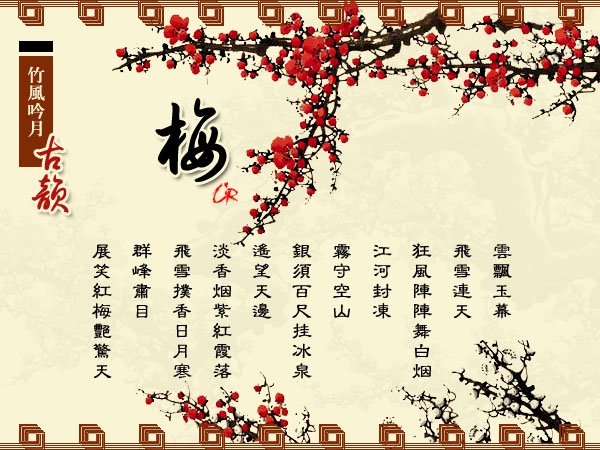 竹風吟月
古韻
梅
雲飄玉幕
飛雪連天
狂風陣陣舞白烟
江河封凍
霧守空山
銀須百尺挂冰泉
遙望天邊
淡香烟紫紅霞落
飛雪撲香日月寒
群峰肅目
展笑紅梅艷驚天